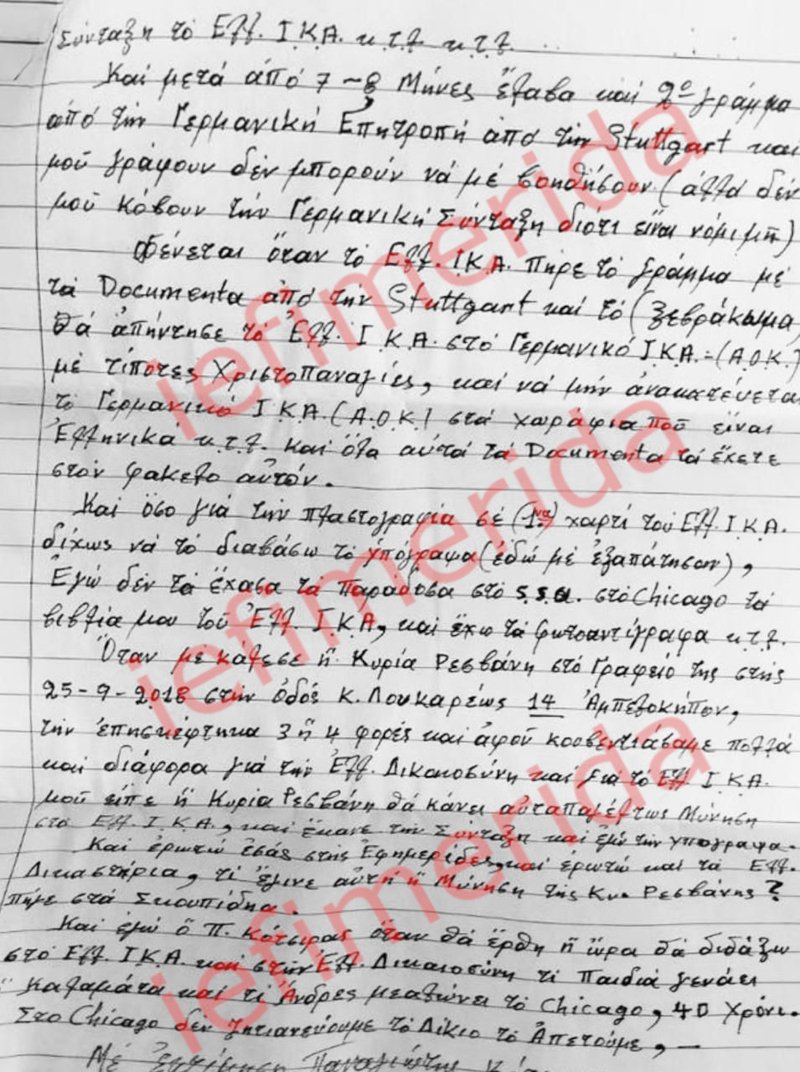 Σύνταξη τό Ελλ. Ι.Κ.Α. κ.τ.λ κ.τ.λ
Καί μετά από 7-8 Μήνες έλαβα καί 2ο γράμμα
από τήν Γερμανική Επητροπή από τήν Stuttgart καί
μού γράφουν δέν μπορουν νά μέ βοηθήσουν (αλλά δέν
μού κόβουν τήν Γερμανική Σύνταξη διότι είναι νόμιμη)
Φένεται όταν τό Ελλ. Ι.Κ.Α. πήρε τό γράμμα μέ
τά Documenta από τήν Stuttgart καί τό (ξεβράκωμα,
θά απήντησε τό Ελλ. Ι Κ.Α. στό Γερμανικό Ι.Κ.Α.=(Α.Ο.Κ.)
μέ τίποτες Χριστοπαναγίες, καί νά μήν ανακατέυεται
τό Γερμανικό Ι.Κ.Α.(Α.Ο.Κ) στά χωράφια πού είναι
Ελληνικά κ.τ.λ. καί όλα αυτά τά Documenta τά έχετε
στόν φακελο αυτόν.
Καί όσο γιά τήν πλαστογραφία σέ (1να) χαρτί τού Ελλ. Ι.Κ.Α.
δίχως νά τό διαβάσω τό υπόγραψα (εδώ μέ εξαπάτησαν),
Εγώ δέν τά έχασα τά παράδοσα στό s.s.a. στό Chicago τά
βιβλία μου τού Ελλ. Ι.Κ.Α, καί έχω τά φωτοαντίγραφα κ.τ.λ.
Όταν με κάλεσε ή Κυρία Ρεσβάνη στό Γραφείό της στής
25-9-2018 στήν οδός Κ. Λουκαρέως 14 Αμπελοκήπον,
τήν επησκέφτηκα 3 ή 4 φορές καί αφού κουβεντιάσαμε πολλά
καί διάφορα γιά τήν Ελλ. Δικαιοσύνη καί γιά τό Ελλ Ι.Κ.Α.
μού είπε ή Κυρία Ρεσβάνη θά κάνει αυταπαγέλτως Μύνηση
στό Ελλ. Ι.Κ.Α., καί έκανε τήν Σύνταξη καί εγώ τήν υπόγραψα.
Καί ερωτώ εσάς στής Εφημερίδες, καί ερωτώ καί τά Ελλ.
Δικαστήρια, τί έγινε αυτή ή Μύνηση τής Κυ. Ρεσβάνης?
πήγε στά Σκουπίδηα.
Καί εγώ ό Π. Κότσιρας όταν θά έρθη ή ώρα θά διδάξω
στό Ελλ. Ι.Κ.Α. καί στήν Ελλ. Δικαιοσύνη τί Παιδιά γενάει
ή Καλαμάτα καί τί Άνδρες μεγαλώνει τό Chicago, 40 Χρόνι.
Στο Chicago δέν ζητιανεύουμε τό Δίκιο τό Απετούμε,—
Μέ Εκτίμηση Παναγιώτης
iefimerida
iefimerida
iefimerida